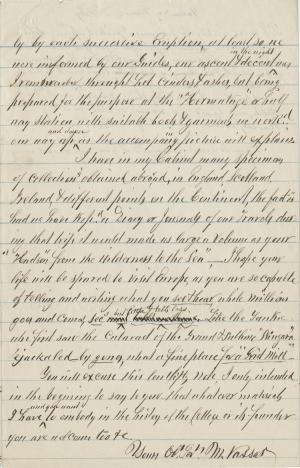 by by each successive Eruption, at least so, we
were informed by our Guides, our ascent & decent was
in the night
through hot Cinders & ashes, but being
prepared for the purpose at the "Hermitage" or half
way station with suitable boots & garments, we
and
our way up, as the accompany picture will explain
I have in my Cabinet many specimen
of Collections obtained abroad, in England, Scotland
Ireland & different points on the Continent, the fact is
had we have kept a Diary or Journal of our Travels
me that trip it would made as large a volume as your
"Hudson from the Wilderness to the Sea" I hope your
life will be spared to visit Europe, as you are so capable
of telling and writing what you see & hear while Millions
goes and comes, see
Like the Yankee
who first saw the Cataract of the Grand
ejaculated by what a fine place for a Grist Mill
You will excuse this lengthy Note, I only intended
in the begining to say to you that whatever materials
and you want
I have to embody in the History of the College or its founder
you are welcome to &c
Yours M. Vassar